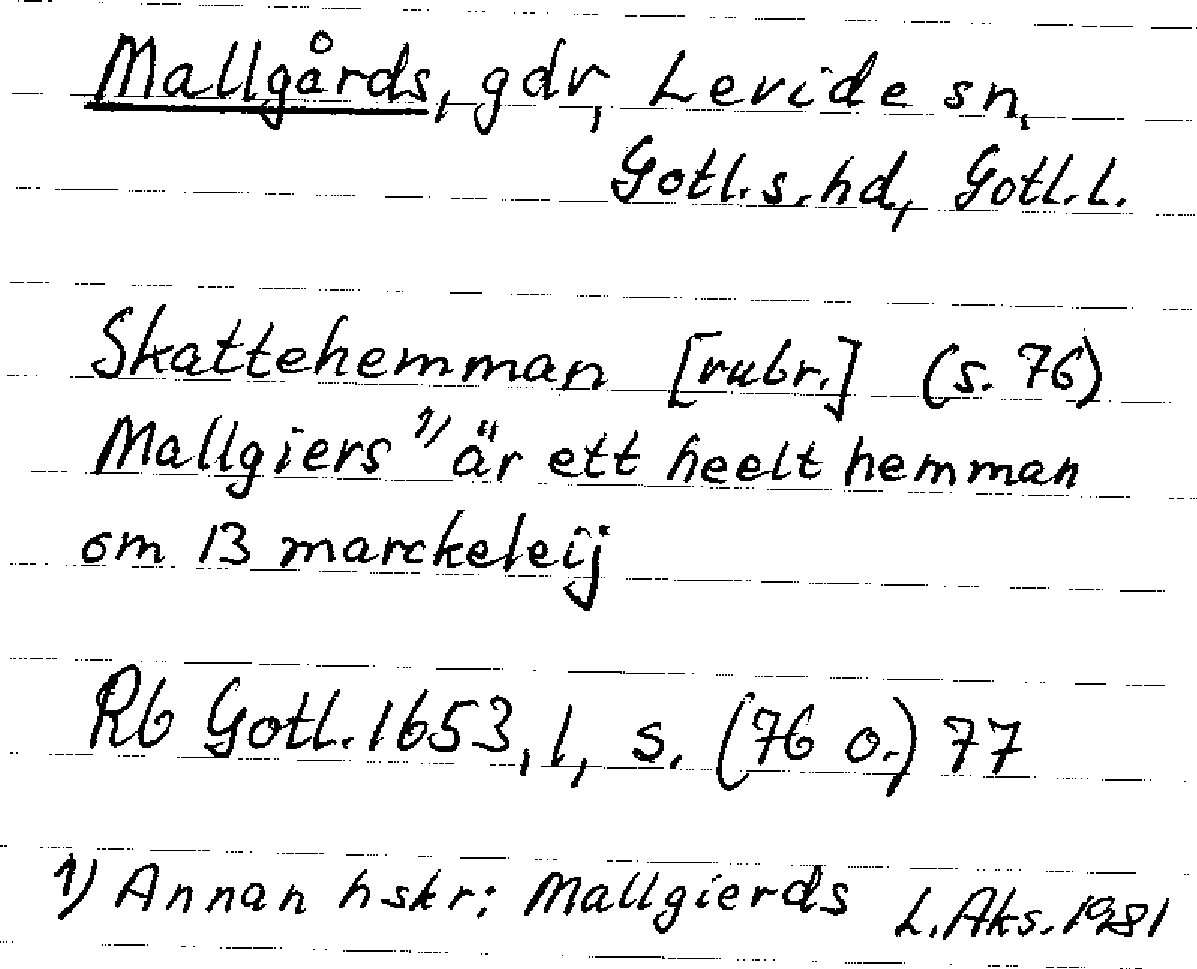 Mallgårds, gdr, Levide sn,
Gotl.s.hd, Gotl.l.
Skattehemman [rubr.] (s. 76)
Mallgiers 1) är ett heelt hemman
om 13 marckeleij
Rb Gotl. 1653, 1, s. (76 o.) 77
1) Annan hskr: Mallgierds L.Aks. 1981